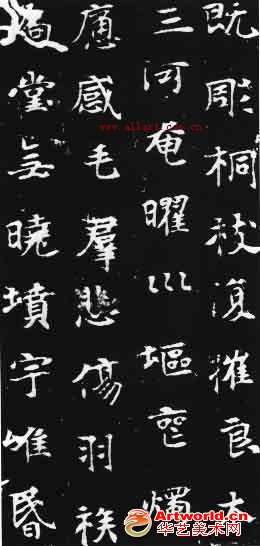 既彫桐枝復摧良木
三河奄曜巛空燭
感毛羣悲傷羽族
堂無曉墳宇唯昏
www.allart.com.cn
Artworld.cn
华艺美术网